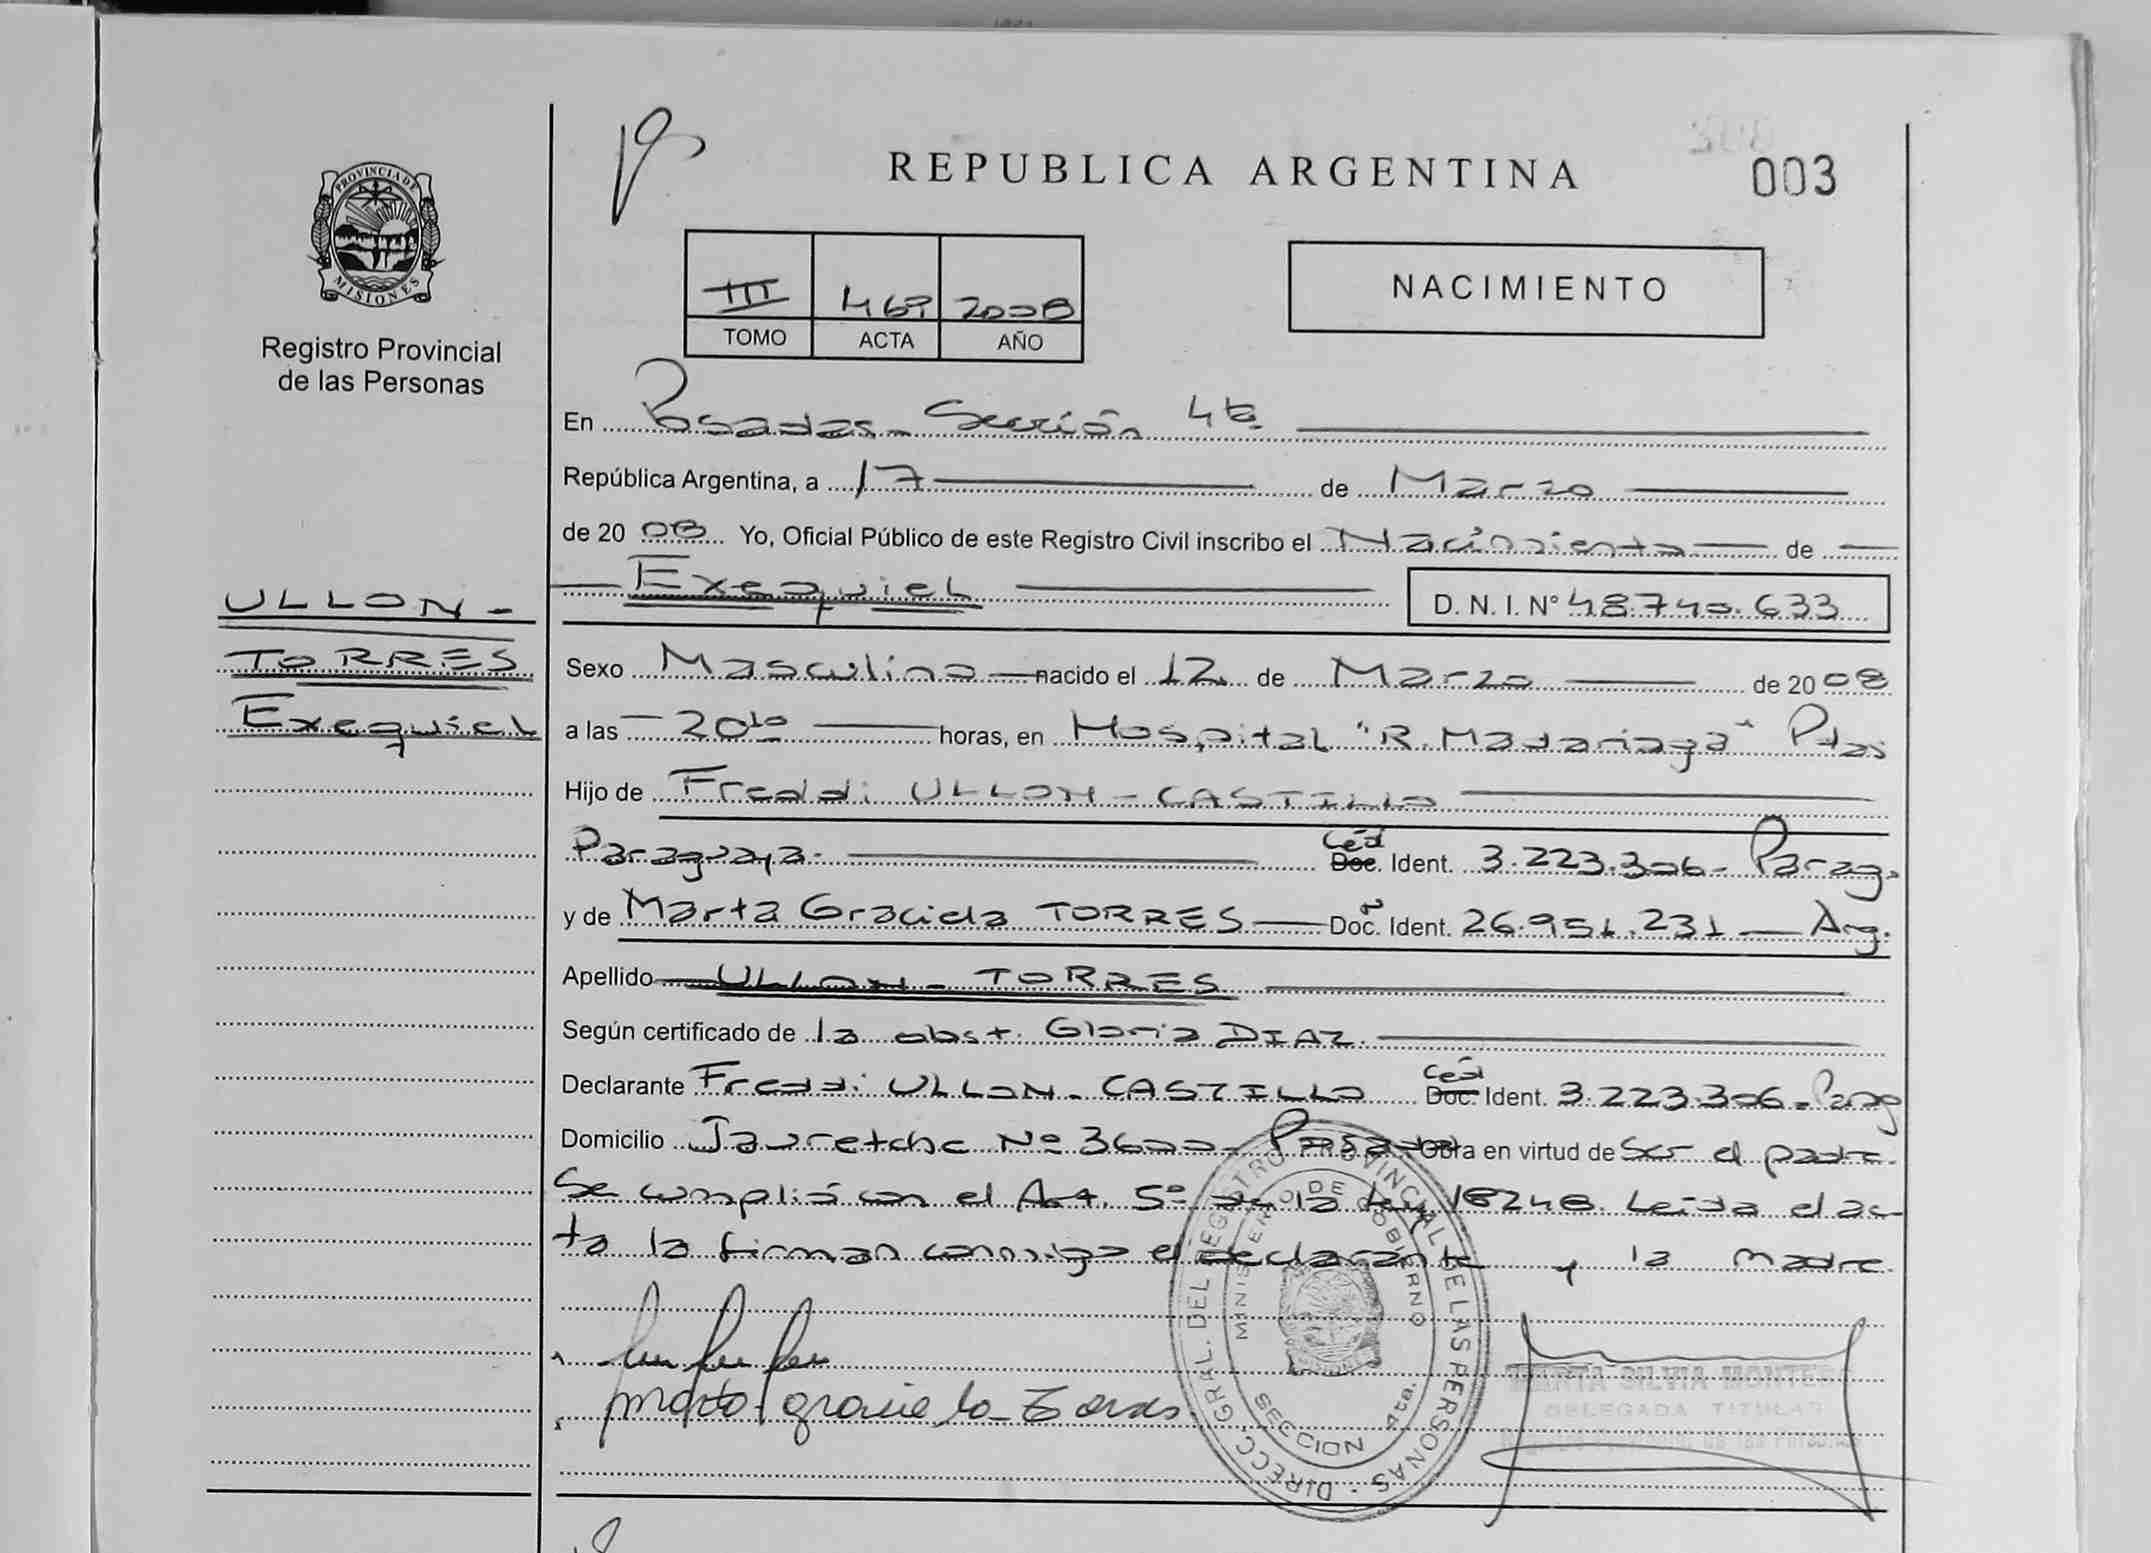 REPUBLICA ARGENTINA
003
PROVINCIA DE MISIONES
Registro Provincial
de las Personas
III 469 2008
TOMO ACTA AÑO
NACIMIENTO
En Posadas - Sección 4ta
República Argentina, a 17 de Marzo
de 2008 Yo, Oficial Público de este Registro Civil inscribo el Nacimiento de
Exequiel D. N. I. N° 48.740.633
ULLON -
TORRES
Exequiel
Sexo Masculino nacido el 12 de Marzo de 2008
a las 20 10 horas, en Hospital "R. Madariaga" Pdas
Hijo de Freddi ULLON - CASTILLO
Paraguaya. Céd Doc. Ident. 3.223.306 - Parag.
y de Marta Graciela TORRES Doc. Ident. 26.951.231 Arg.
Apellido ULLON - TORRES
Según certificado de la obst. Gloria DIAZ.
Declarante Freddi ULLON - CASTILLO Céd Doc. Ident. 3.223.306 - Parag
Domicilio Jauretche Nº 3600 - Posadas Obra en virtud de Ser el padre.
Se cumplió con el Art. 5º de la Ley 18248. Leida el ac-
ta la firman conmigo el declarante y la madre.
marta graciela Torres
DIRECC. GRAL. DEL REGISTRO PROVINCIAL DE LAS PERSONAS
MINISTERIO DE GOBIERNO
SECCION 4ta.
MARTA SILVIA MONTES
DELEGADA TITULAR